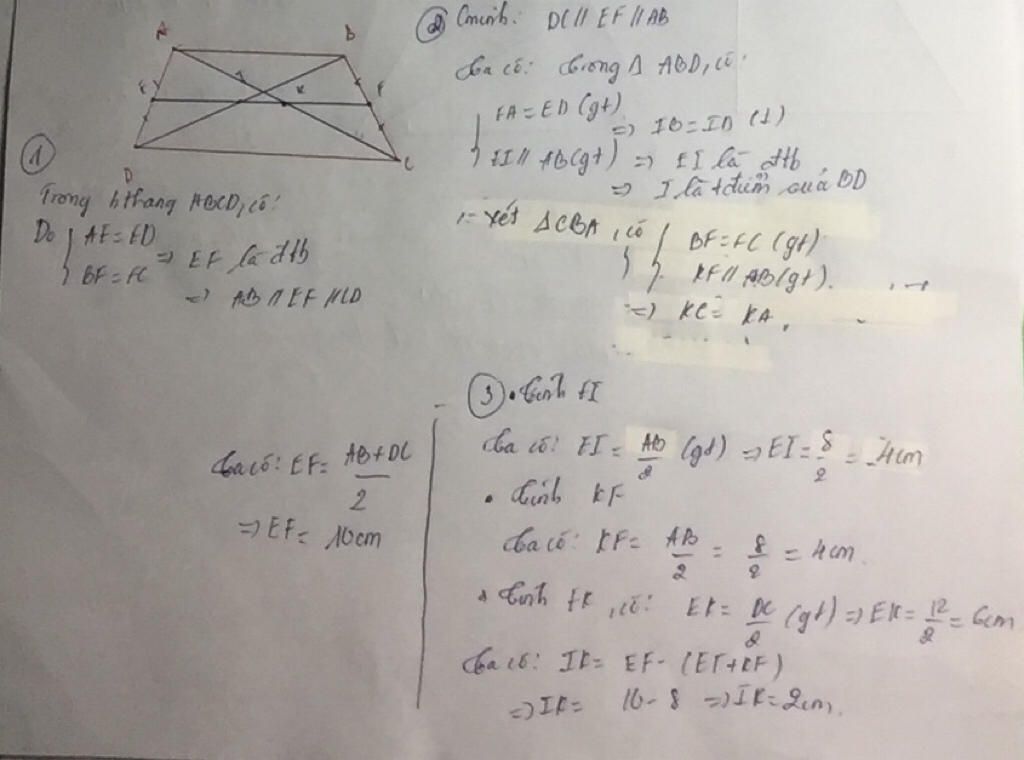 A
B
E
I
K
F
D
C
①
Trong hthang ABCD, có:
Do { AE = ED
BF = FC
=> EF là đtb
=> AB // EF // CD
② Cminh: DC // EF // AB
Ta có: trong Δ ABD, có:
EA = ED (gt)
=> IB = ID (1)
EI // AB (gt) => EI là đtb
=> I là tđiểm của BD
Xét ΔCBA, có { BF = FC (gt)
KF // AB (gt).
=> KC = KA.
③ • Tính EI
Ta có: EI = AB/2 (gt) => EI = 8/2 = 4cm
• Tính KF
Ta có: KF = AB/2 = 8/2 = 4cm.
Tính EK, có: EK = DC/2 (gt) => EK = 12/2 = 6cm
Ta có: IK = EF - (EI + KF)
=> IK = 10 - 8 => IK = 2cm.
Ta có: EF = AB + DC
2
=> EF = 10cm